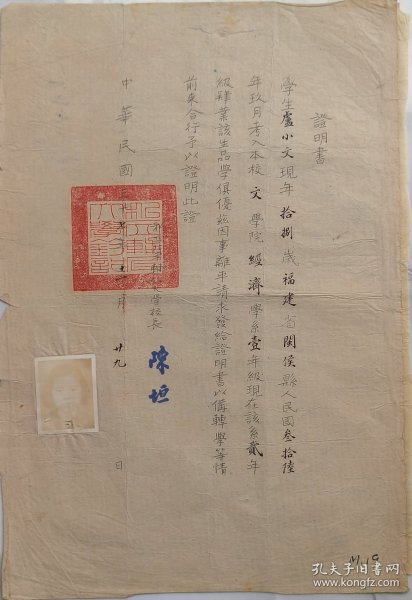 證明書
學生盧小文現年拾捌歲福建省閩侯縣人民國叁拾陸
年玖月考入本校文學院經濟學系壹年級現在該系貳年
級肄業該生品學俱優茲因事離平請求發給證明書以備轉學等情
前來合行予以證明此證
學校長 陳垣
中華民國三十七年十一月廿九日
孔夫子旧书网
www.kongfz.com